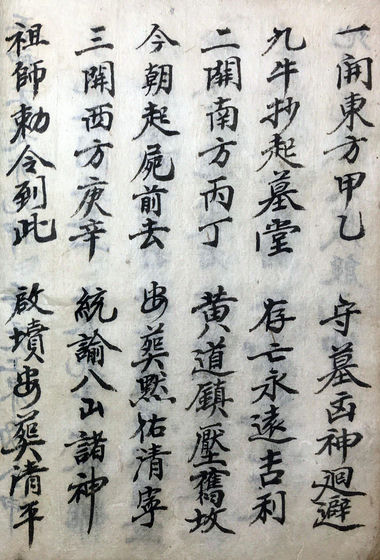 一開東方甲乙 守墓凶神迴避
九牛抄起墓堂 存亡永遠吉利
二開南方丙丁 黄道鎮壓舊坟
今朝起屍前去 安葬默佑清寧
三開西方庚辛 統諭八山諸神
祖師勅令到此 啟墳安葬清平